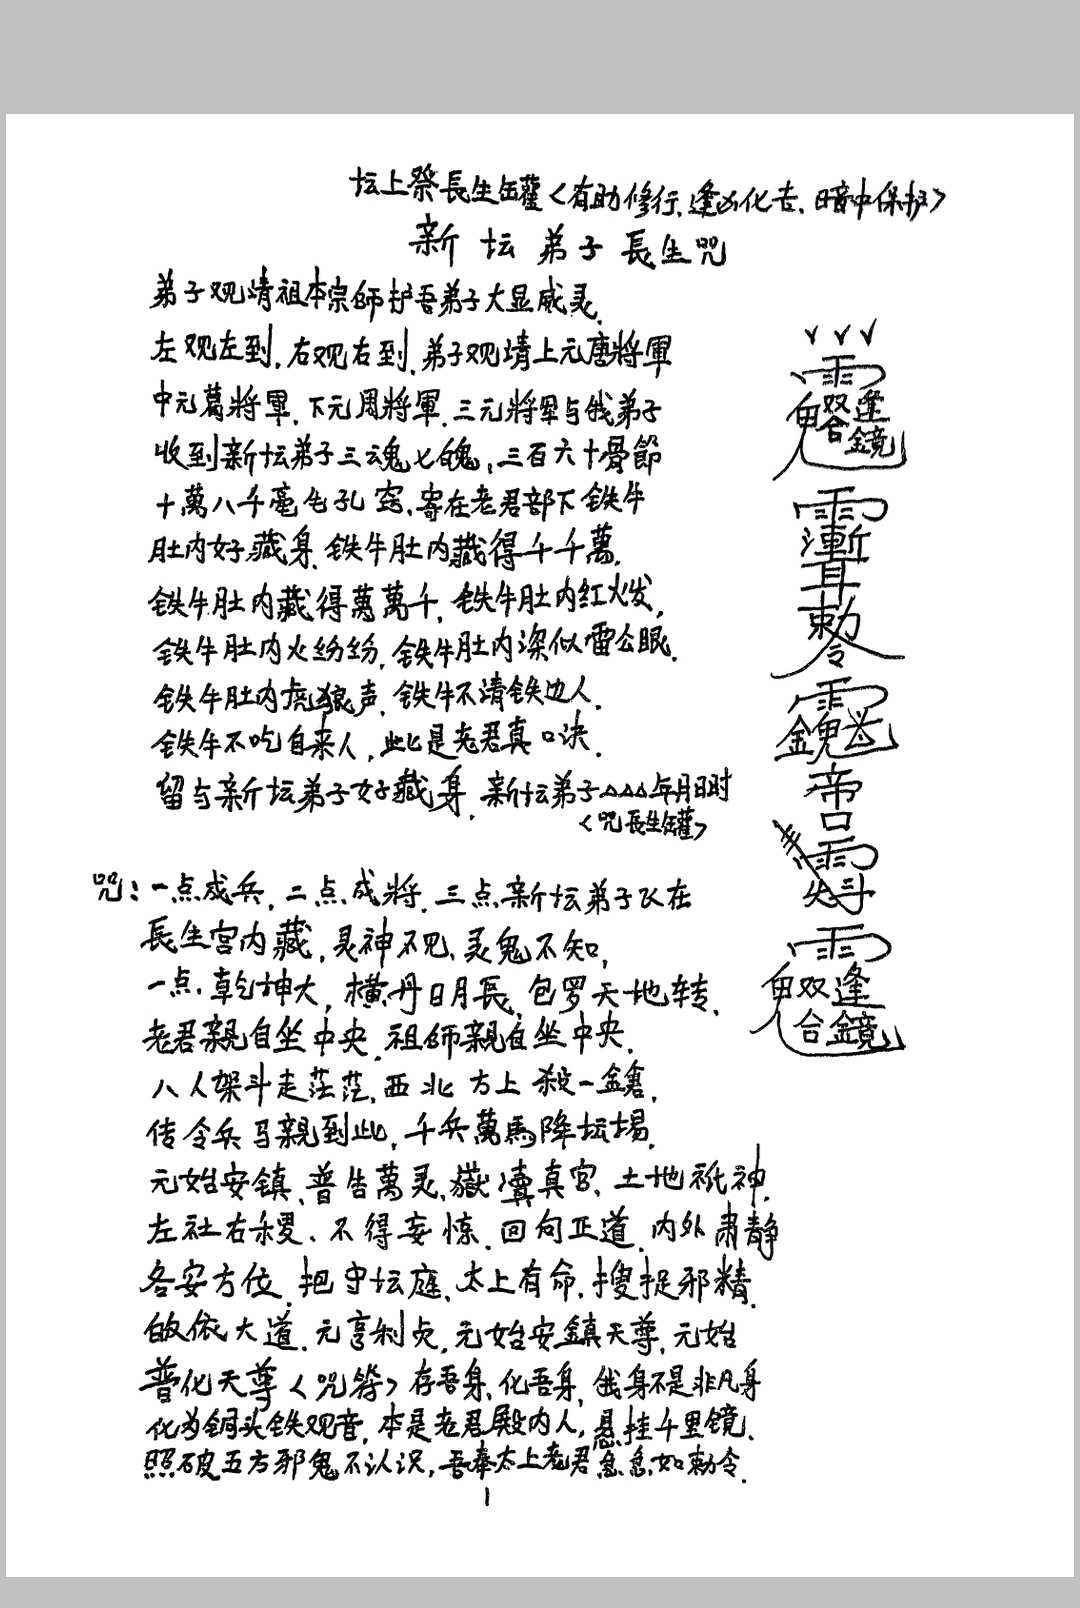 坛上祭長生罐〈有助修行、逢凶化吉、暗中保护〉
新坛弟子長生咒
弟子观請祖本宗師护吾弟子大显威灵.
左观左到,右观右到,弟子观請上元唐將軍
中元葛將軍,下元周將軍,三元將軍与我弟子
收到新坛弟子三魂七魄,三百六十骨節
十萬八千毫毛孔窍,寄在老君部下铁牛
肚内好藏身.铁牛肚内藏得千千萬.
铁牛肚内藏得萬萬千,铁牛肚内红火发,
铁牛肚内火纷纷,铁牛肚内深似雷公眠.
铁牛肚内虎狼声.铁牛不清铁边人.
铁牛不吃自来人,此是老君真口决.
留与新坛弟子好藏身.新坛弟子△△△年月日时
〈咒長生罐〉
咒:一点成兵,二点成將,三点新坛弟子飞在
長生宫内藏,灵神不见、灵鬼不知,
一点.乾坤大,横丹日月長,包罗天地转.
老君親自坐中央.祖师親自坐中央.
八人架斗走茫茫,西北方上殺一鎗,
传令兵马親到此,千兵萬馬降坛場.
元始安镇、普告萬灵、嶽瀆真官、土地祇神.
左社右稷、不得妄惊.回向正道.内外肃静
各安方位.把守坛庭、太上有命.搜捉邪精.
皈依大道.元亨利贞,元始安鎮天尊,元始
普化天尊〈咒符〉存吾身、化吾身,我身不是非凡身
化为铜头铁观音,本是老君殿内人,悬挂千里镜、
照破五方邪鬼不认识,吾奉太上老君急急如勅令.
1
双逢
合鏡
漸
耳
勅
令
帝
口
双逢
合鏡